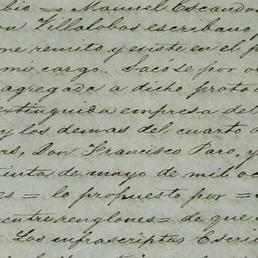 bio = Manuel Escandon
on Villalobos escribano,
me remito, y existe en el p
mi cargo. Sacóse por
agregada a dicho proto
extinguida empresa del
y los demas del cuarto
as, Don Francisco Faro, y
inta de mayo de mil oc
es = lo propuesto por =
entre renglones = de que
Los infrascriptos Escri